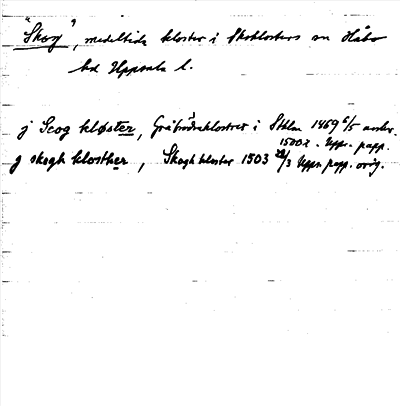 "Skog", medeltida kloster i Skoklosters sn Håbo
hd Uppsala l.
j Scog kloster, Gråbrödraklostret i Sthlm 1469 6/5 avskr.
1500-t. Uppr. papp.
j skogh klosther, Skogh kloster 1503 22/3 Uppr. papp. orig.